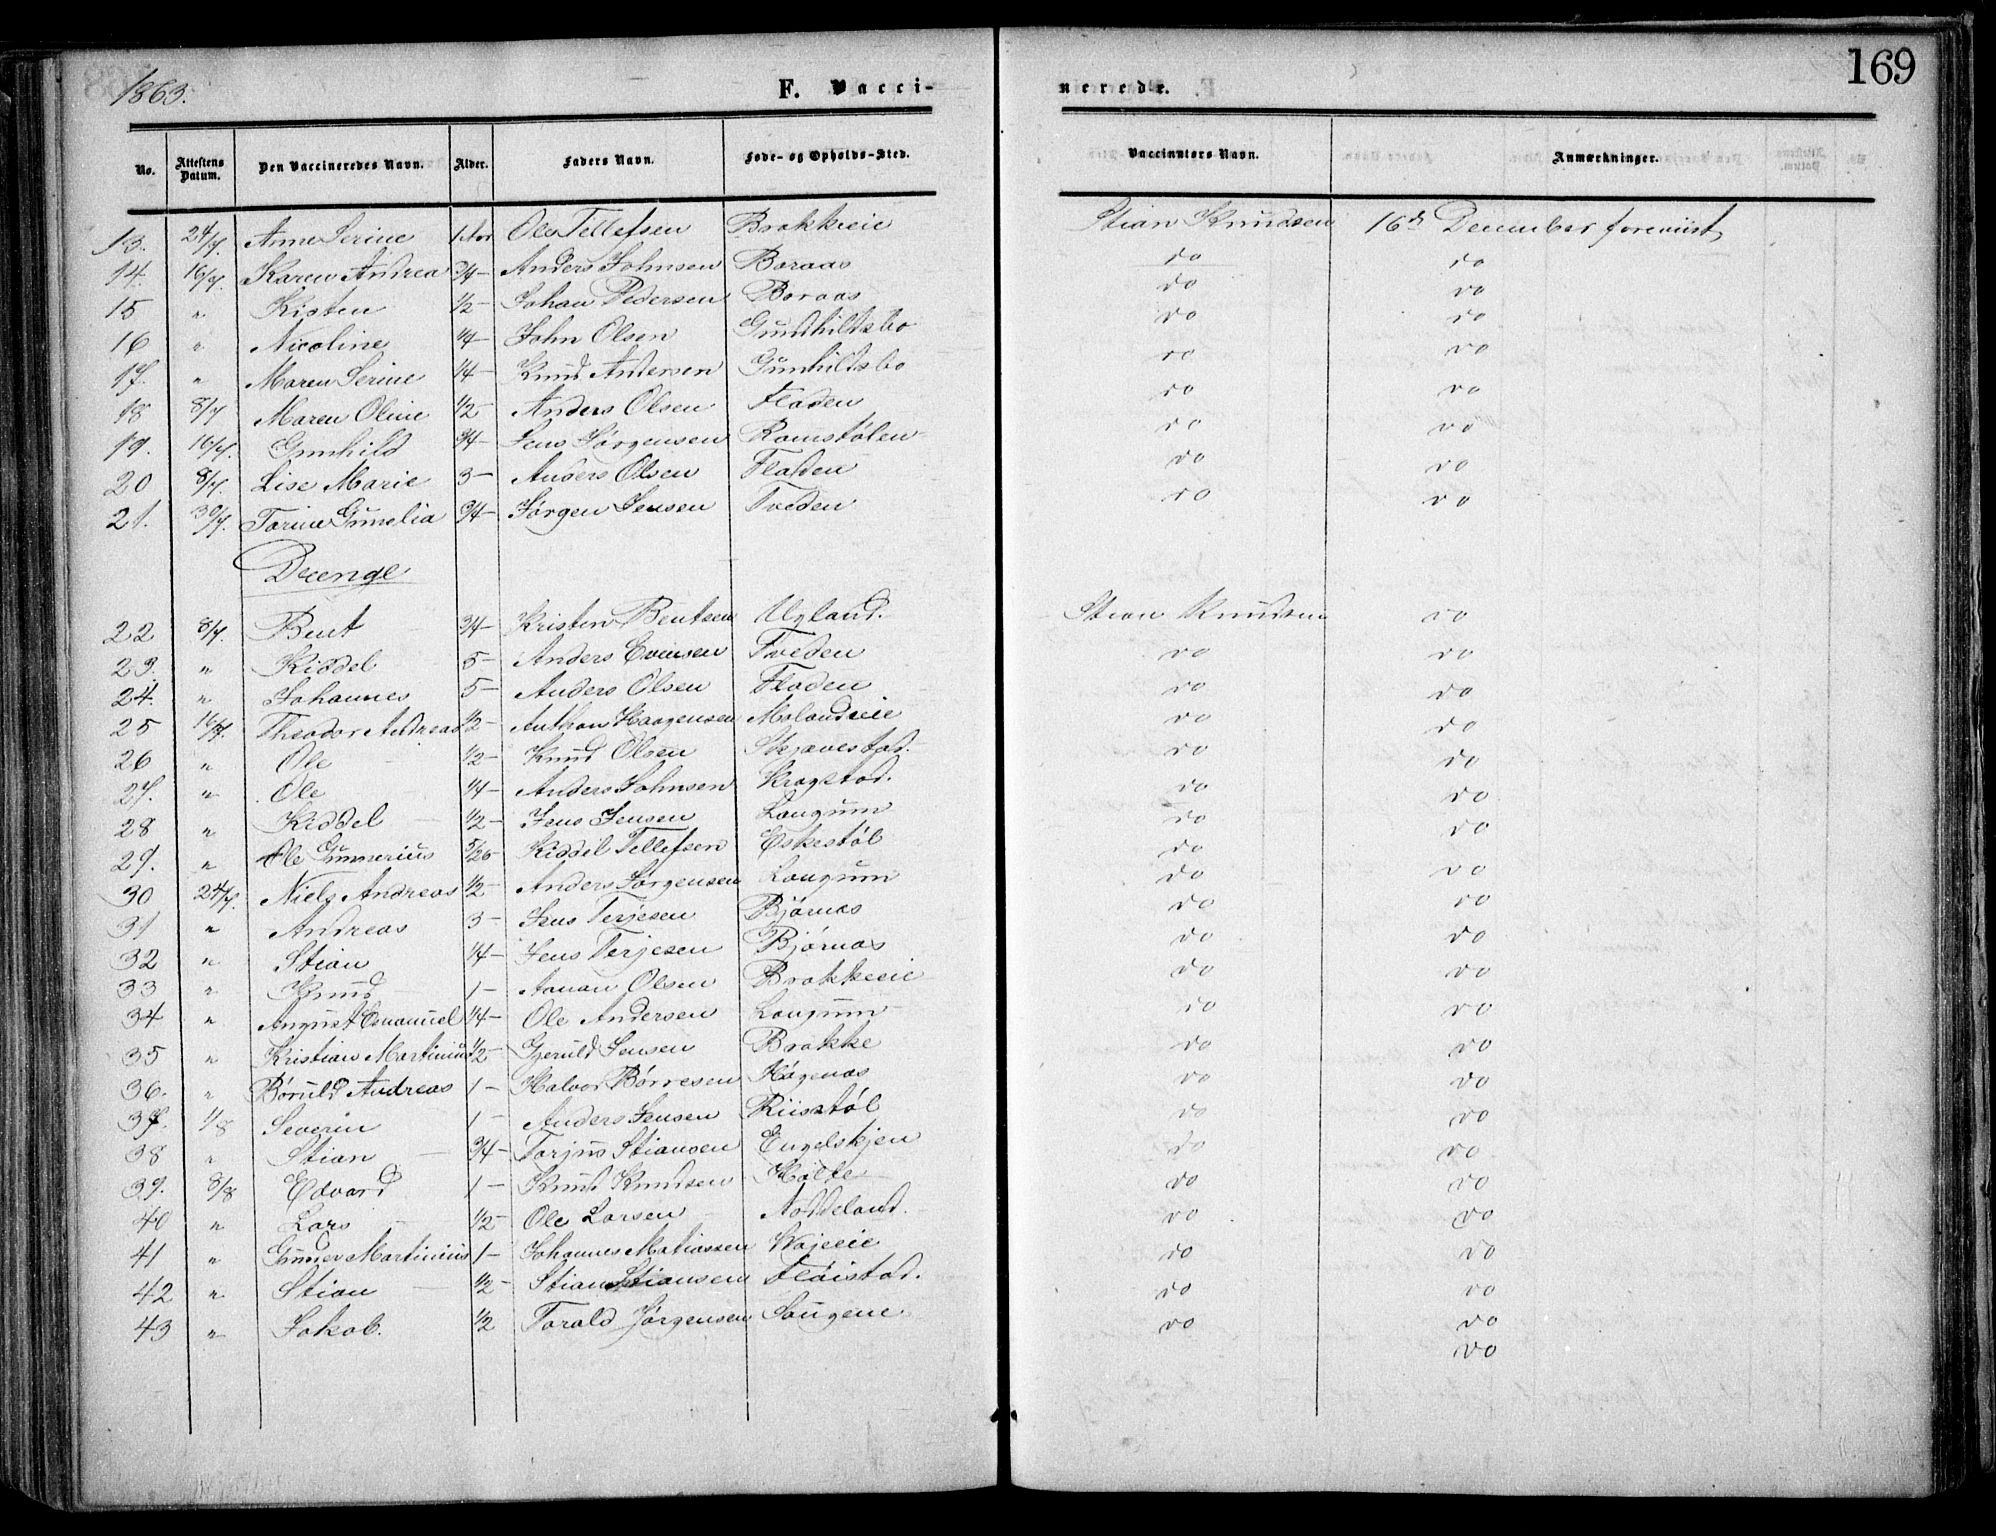 1863.
F. Vacci-
nerede.
169
No. Attestens Datum. Den Vaccineredes Navn. Alder. Faders Navn. Føde- og Opholds-Sted. Vaccinatørs Navn. Anmærkninger.
13. 24/7. Anne Serine 1 Aar Ole Tellefsen Brakkeeie Stian Knudsen 16d December foreviist
14. 16/7. Karen Andrea 3/4 - Anders Johnsen Boraas do do
15 " Kisten 1/2 - Johan Pedersen Boraas do do
16 " Nicoline 1/4 - John Olsen Gundhildsbo do do
17. " Maren Serine 1/4 - Knud Andersen Gunhildsbo do do
18 8/7 Maren Oline 1/2 - Anders Olsen Fladen do do
19. 16/7. Gunhild 3/4 - Jens Jørgensen Ramstølen do do
20 8/7. Lise Marie 3 - Anders Olsen Fladen do do
21. 30/7. Tarine Gunelia 3/4 - Jørgen Jensen Tveden do do
Drenge
22 8/7. Bent 3/4 - Kristen Bentsen Ugland. Stian Knudsen do
23. " Kiddel 5 - Anders Evensen Tveden do do
24. " Johannes 5 - Anders Olsen Fladen do do
25 16/7. Theodor Andreas 1/2 - Anthon Haagensen Molandseie do do
26 " Ole 1/2 - Knud Olsen Skjævestad. do do
27. " Ole 1/4 - Anders Johnsen Kragstad. do do
28 " Kiddel 1/2 - Jens Jensen Longum do do
29. " Ole Gunnerius 5/26 - Kiddel Tellefsen Eskestøl do do
30 24/7. Niels Andreas 1/2 - Anders Jørgensen Longum do do
31 " Andreas 3 - Jens Terjesen Bjørnas do do
32 " Stian 1/4 - Jens Terjesen Bjørnas do do
33 " Knud 1 - Aanon Olsen Brakkeeie do do
34 " August Emanuel 1/4 - Ole Andersen Longum do do
35 " Kristian Martinius 1/2 - Gjeruld Jensen Brakke do do
36. " Børuld Andreas 1 - Halvor Børresen Høgenas do do
37. 1/8 Severin 1 - Anders Jensen Riisstøl do do
38 " Stian 3/4 - Torjus Stiansen Engelskjen do do
39. 8/8 Edvard 1 - Knud Knudsen Holte do do
40 " Lars 1/2 - Ole Larsen Noddeland. do do
41 " Gunder Martinius 1 - Johannes Matiassen do do
42 " Stian 1/2 - Stian Stiansen Fløistad. do do
43 " Jakob. 1/2 Torald Jørgensen Sougene do do
do